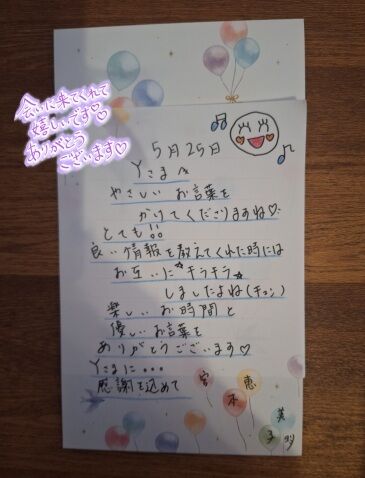 会いに来てくれて
嬉しいです♡
ありがとう
ございます♡
5月25日
Yさまへ
やさしい お言葉を
かけてくださりますね♡
とても!!
良い情報を教えてくれた時には
お互いに☆キラキラ☆
しましたよね(キュン)
楽しいお時間と
優しいお言葉を
ありがとうございます♡
Yさまに...
感謝を込めて
宮本恵
美子